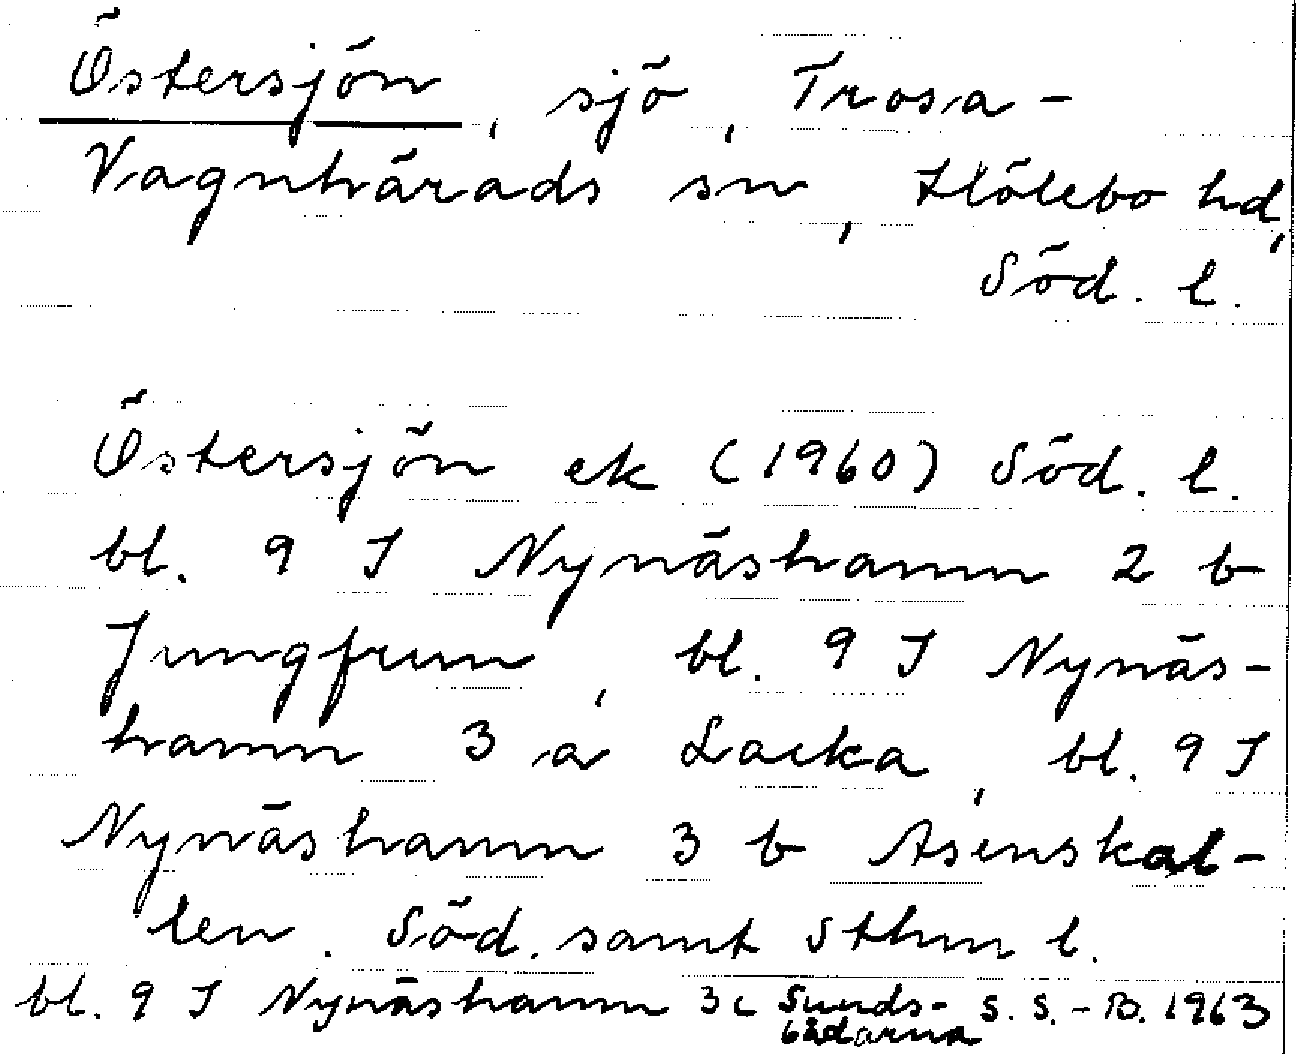 Östersjön, sjö, Trosa-
Vagnhärads sn, Hölebo hd,
Söd. l.
Östersjön ek (1960) Söd. l.
bl. 9 I Nynäshamn 2 b
Jungfrun, bl. 9 I Nynäs-
hamn 3 a Lacka, bl. 9 I
Nynäshamn 3 b Asenskal-
len. Söd. samt Sthm l.
bl. 9 I Nynäshamn 3c Sunds- S. S. - B. 1963
bådarna